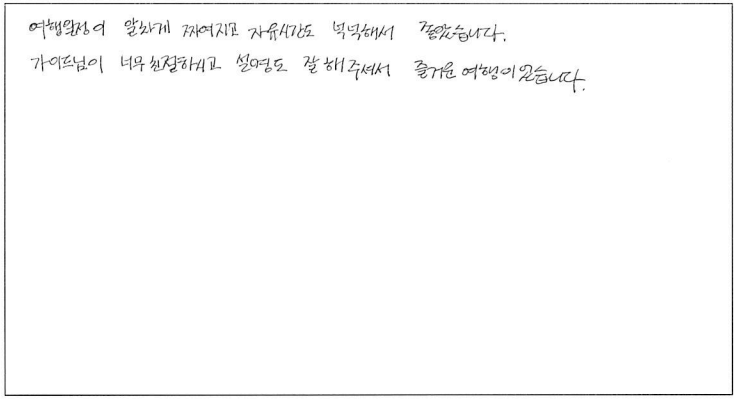 여행일정이 알차게 짜여지고 자유시간도 넉넉해서 좋았습니다.
가이드님이 너무 친절하시고 설명도 잘 해주셔서 즐거운 여행이었습니다.